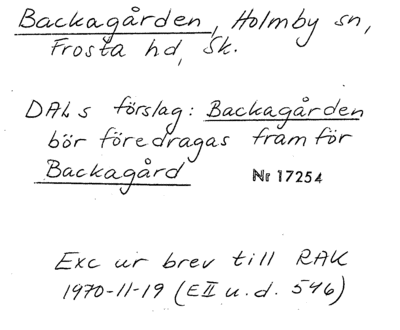 Backagården, Holmby sn,
Frosta hd, Sk.
DALs förslag: Backagården
bör föredragas framför
Backagård Nr 17254
Exc ur brev till RAK
1970-11-19 (EII u.d. 546)